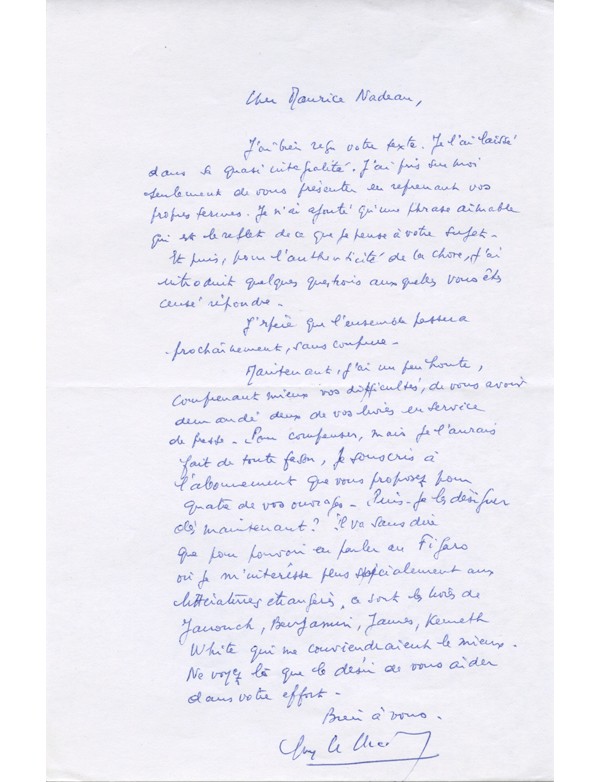 Cher Maurice Nadeau,
J'ai bien reçu votre texte. Je l'ai laissé
dans sa quasi intégralité. J'ai pris sur moi
seulement de vous présenter en reprenant vos
propres termes. Je n'ai ajouté qu'une phrase aimable
qui est le reflet de ce que je pense à votre sujet -
Et puis, pour l'authenticité de la chose, j'ai
introduit quelques questions auxquelles vous êtes
censé répondre -
J'espère que l'ensemble passera
prochainement, sans coupure -
Maintenant, j'ai un peu honte,
comprenant mieux vos difficultés, de vous avoir
demandé deux de vos livres en service
de presse - Pour compenser, mais je l'aurais
fait de toute façon, je souscris à
l'abonnement que vous proposez pour
quatre de vos ouvrages - Puis-je les désigner
dès maintenant ? Il va sans dire
que pour pouvoir en parler au Figaro
où je m'intéresse plus spécialement aux
littératures étrangères, ce sont les livres de
Janouch, Benjamin, James, Kenneth
White qui me conviendraient le mieux -
Ne voyez là que le désir de vous aider
dans votre effort -
Bien à vous -